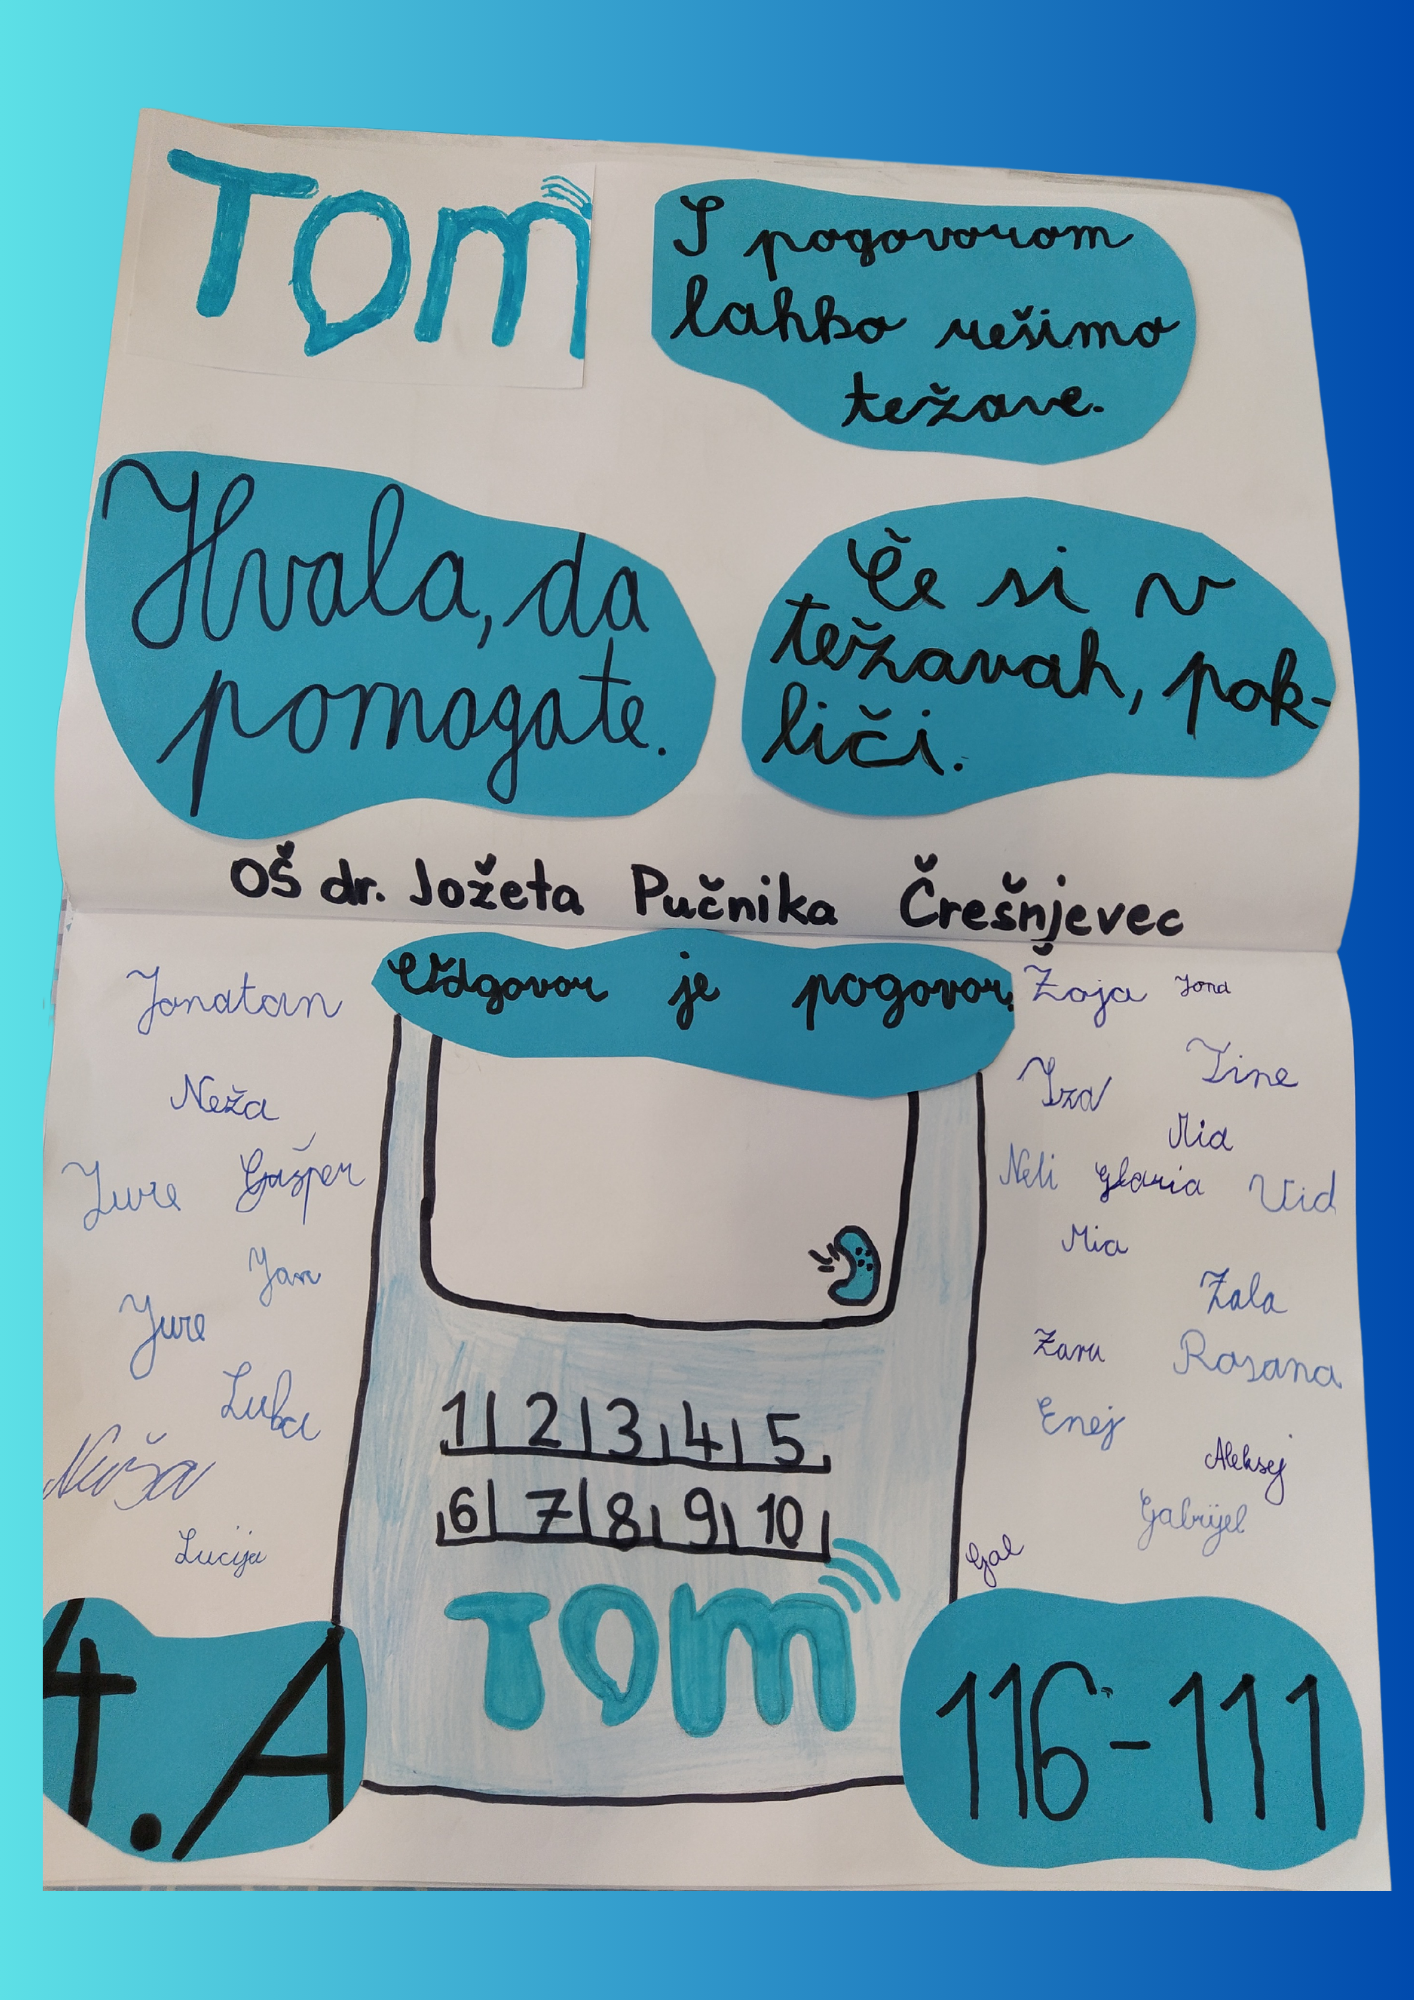 Tom
S pogovorom
lahko rešimo
težave.
Hvala, da
pomagate.
Če si v
težavah, pok-
liči.
OŠ dr. Jožeta Pučnika Črešnjevec
Odgovor je pogovor.
Jonatan
Neža
Jure
Gašper
Jan
Jure
Luka
Nuša
Lucija
Zoja
Iza
Tine
Mia
Neli
Gloria
Vid
Mia
Zala
Zara
Rosana
Enej
Aleksej
Gabrijel
Gal
1 2 3 4 5
6 7 8 9 10
TOM
4. A
116-111